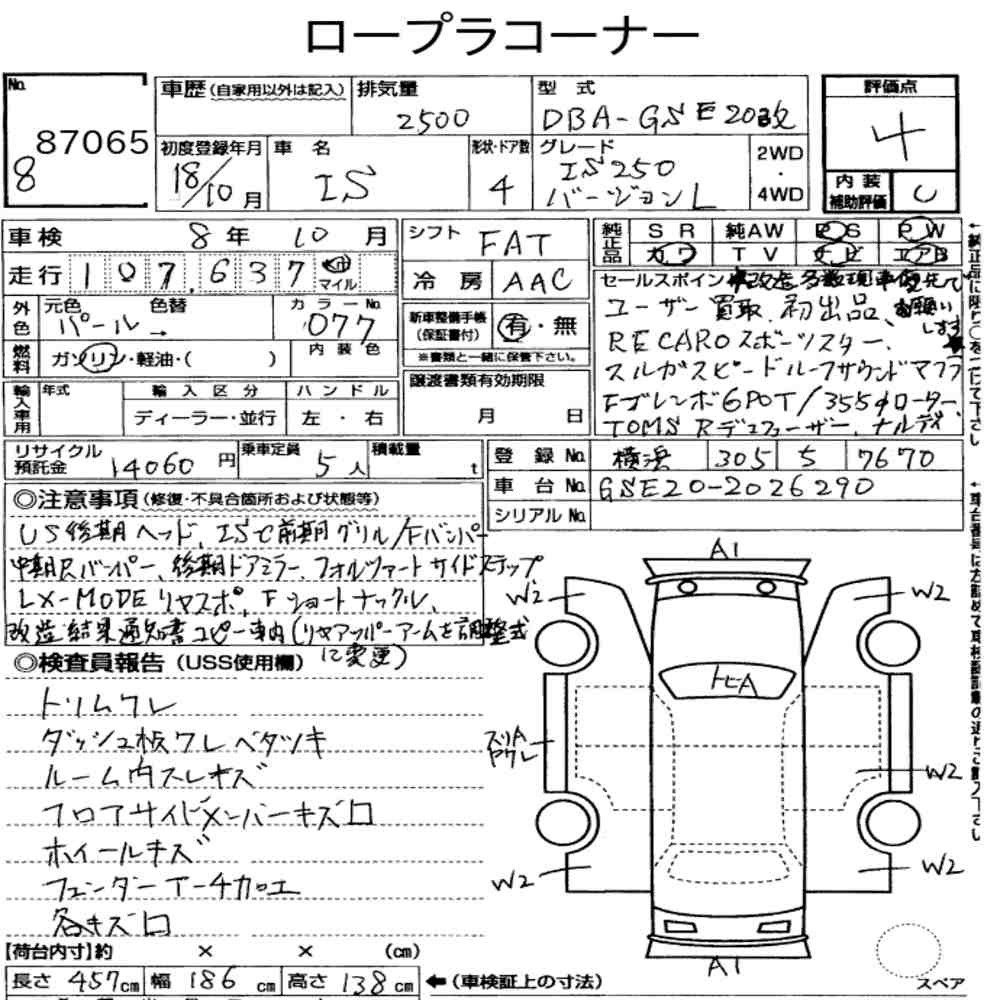 ロープラコーナー
No. 87065
8
車歴 (自家用以外は記入)
排気量 2500
型式 DBA-GSE20改
評価点 4
内装補助評価 C
初度登録年月 18/10月
車名 IS
形状・ドア数 4
グレード IS250 バージョンL
2WD・4WD
車検 8年 10月
走行 107,637 km マイル
シフト FAT
冷房 AAC
純正品 SR 純AW PS PW
カワ TV ナビ エアB
外色 元色 パール→ 色替
カラーNo. 077
内装色
燃料 ガソリン・軽油・( )
新車整備手帳(保証書付) 有・無
※書類と一緒に保管下さい。
セールスポイント 改造多数現車優先でお願いします★
ユーザー買取、初出品、
RECAROスポーツスター、
スルガスピードループサウンドマフラ
Fブレンボ6POT/355φローター、
TOMS Rデュフューザー、ナルディ
輸入車用 年式 輸入区分 ハンドル
ディーラー・並行 左・右
譲渡書類有効期限
月 日
リサイクル預託金 14060円
乗車定員 5人
積載量 t
登録No. 横浜 305 ら 7670
車台No. GSE20-2026290
シリアルNo.
◎注意事項(修復・不具合箇所および状態等)
US後期ヘッド、ISで前期グリル/Fバンパー
中期Rバンパー、後期ドアミラー、フォルツァートサイドステップ
LX-MODEリヤスポ、Fショートナックル、
改造結果通知書コピー車内(リヤアッパーアームを調整式
に変更)
◎検査員報告(USS使用欄)
トリムワレ
ダッシュ板ワレベタツキ
ルーム内スレキズ
フロアサイドメンバーキズロ
ホイールキズ
フェンダーアーチ加工
各キズロ
A1
W2
W2
トビA
スリA
ワレ
W2
W2
W2
A1
スペア
【荷台内寸】約 × × (cm)
長さ 457cm 幅 186cm 高さ 138cm ←(車検証上の寸法)